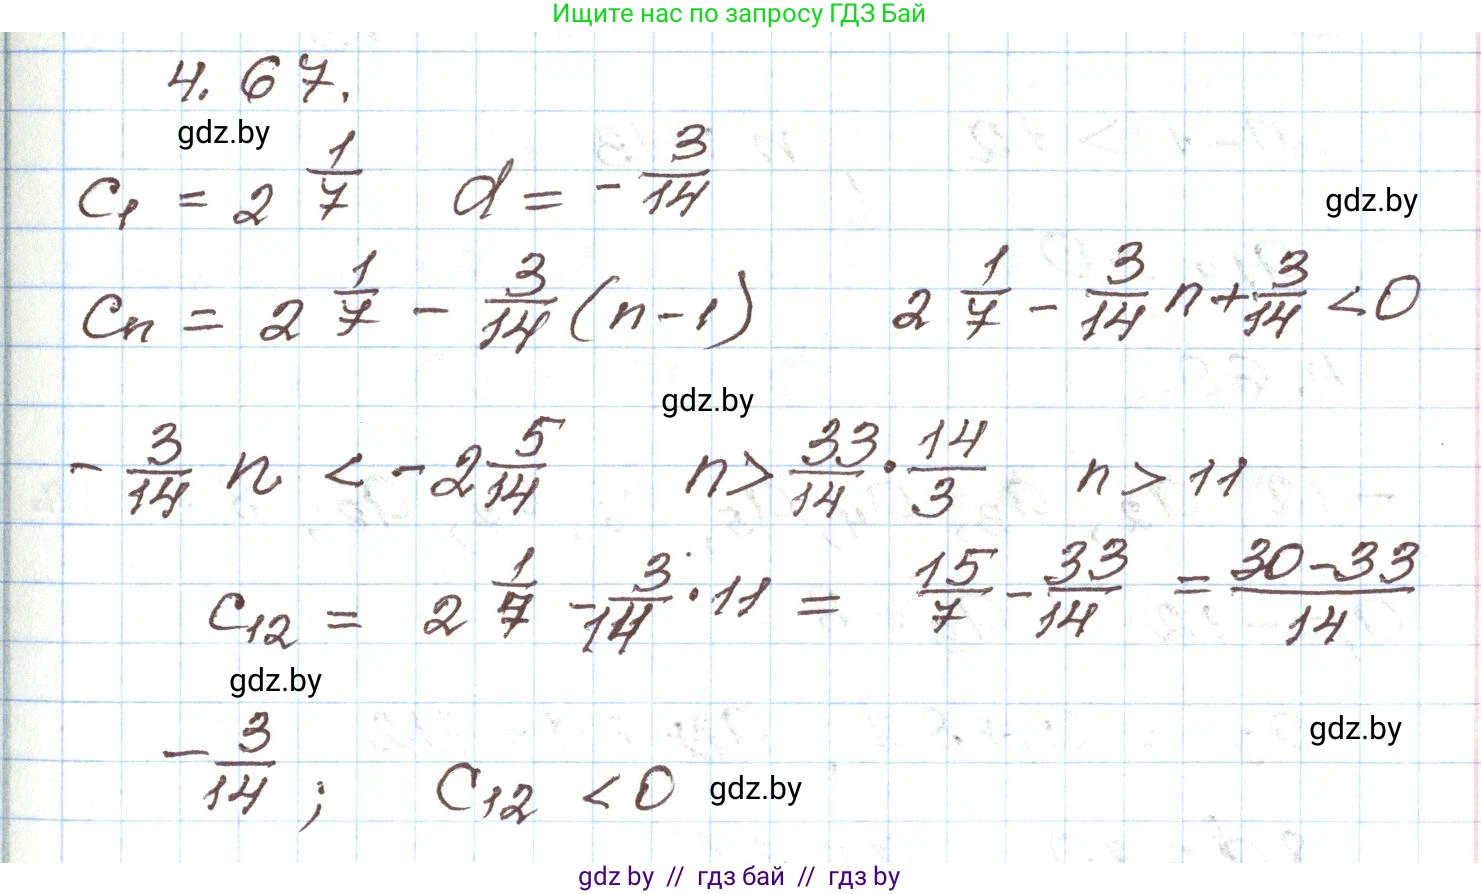 Ищите нас по запросу ГДЗ Бай
4.67.
gdz.by
c₁ = 2 1/7 d = - 3/14
gdz.by
cn = 2 1/7 - 3/14 (n-1) 2 1/7 - 3/14 n + 3/14 < 0
gdz.by
- 3/14 n < - 2 5/14 n > 33/14 · 14/3 n > 11
c₁₂ = 2 1/7 - 3/14 · 11 = 15/7 - 33/14 = 30-33/14
gdz.by
gdz.by
- 3/14 ; c₁₂ < 0
gdz.by
gdz by // гдз бай // гдз by